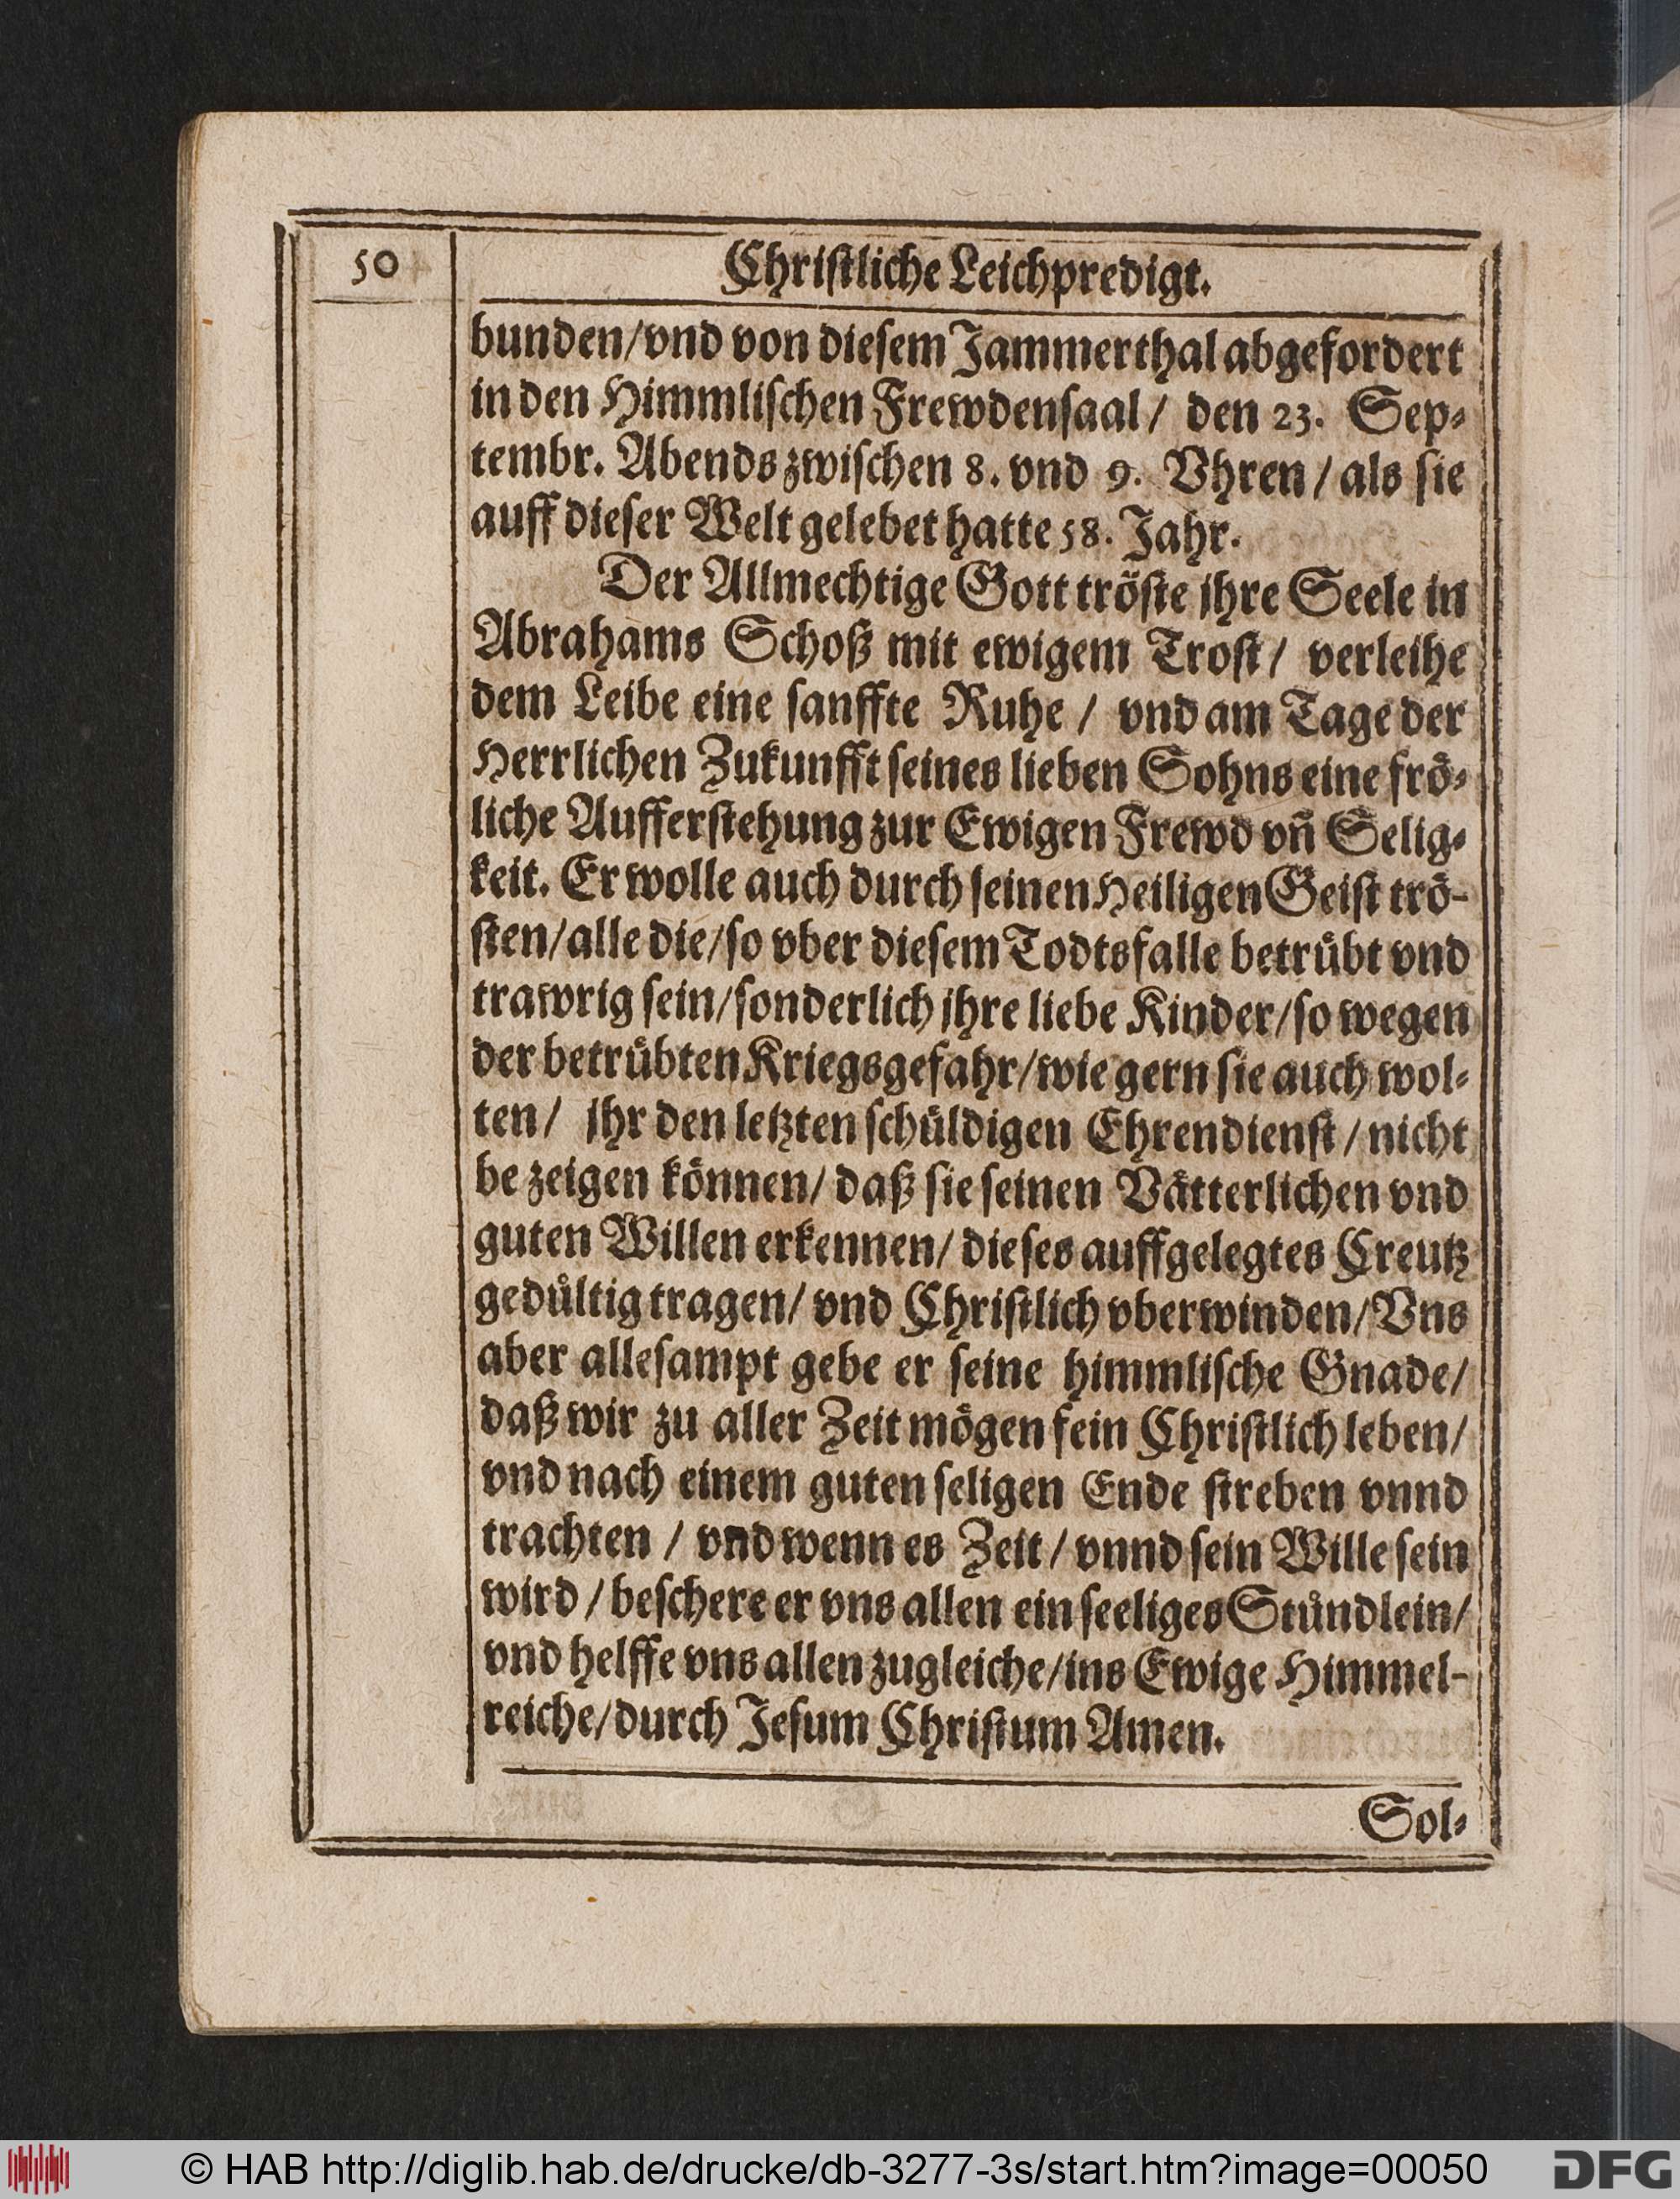 50
Christliche Leichpredigt.
bunden/vnd von diesem Jammerthal abgefordert
in den Himmlischen Frewdensaal / den 23. Sep-
tembr. Abends zwischen 8. vnd 9. Vhren / als sie
auff dieser Welt gelebet hatte 58. Jahr.
Der Allmechtige Gott tröste jhre Seele in
Abrahams Schoß mit ewigem Trost / verleihe
dem Leibe eine sanffte Ruhe / vnd am Tage der
Herrlichen Zukunfft seines lieben Sohns eine frö-
liche Aufferstehung zur Ewigen Frewd vñ Selig-
keit. Er wolle auch durch seinen Heiligen Geist trö-
sten/alle die/so vber diesem Todtsfalle betrübt vnd
trawrig sein/sonderlich jhre liebe Kinder/so wegen
der betrübten Kriegsgefahr/wie gern sie auch wol-
ten/ jhr den letzten schüldigen Ehrendienst / nicht
be zeigen können/ daß sie seinen Vätterlichen vnd
guten Willen erkennen/ dieses auffgelegtes Creutz
gedültig tragen/ vnd Christlich vberwinden/Vns
aber allesampt gebe er seine himmlische Gnade/
daß wir zu aller Zeit mögen fein Christlich leben/
vnd nach einem guten seligen Ende streben vnnd
trachten / vnd wenn es Zeit / vnnd sein Wille sein
wird / beschere er vns allen ein seeliges Stündlein/
vnd helffe vns allen zugleiche/ins Ewige Himmel-
reiche/durch Jesum Christum Amen.
Sol-
© HAB http://diglib.hab.de/drucke/db-3277-3s/start.htm?image=00050
DFG